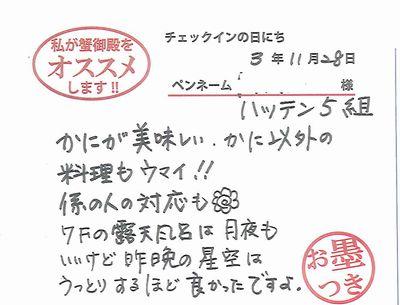 私が蟹御殿を
オススメ
します!!
チェックインの日にち
3年11月28日
ペンネーム 様
ハッテン5組
かにが美味しい、かに以外の
料理もウマイ!!
係の人の対応も
7Fの露天風呂は月夜も
いいけど昨晩の星空は
うっとりするほど良かったですよ。
お墨
つき